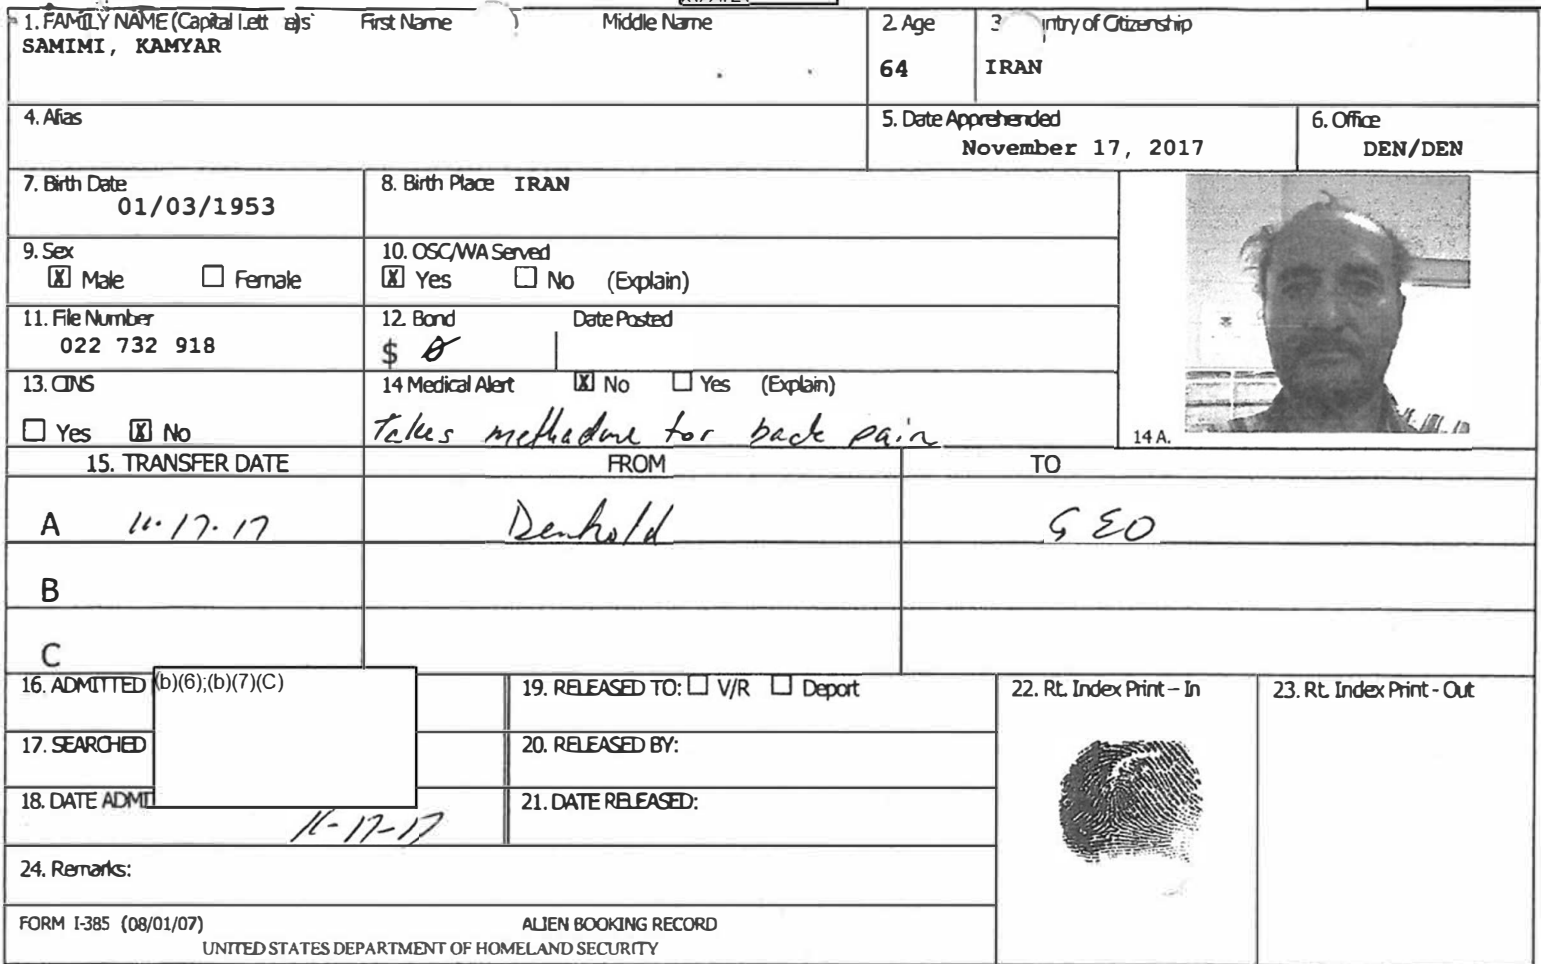 1. FAMILY NAME (Capital Letters) First Name Middle Name
SAMIMI, KAMYAR
2. Age
64
3. Country of Citizenship
IRAN
4. Alias
5. Date Apprehended
November 17, 2017
6. Office
DEN/DEN
7. Birth Date
01/03/1953
8. Birth Place IRAN
9. Sex
X Male Female
10. OSC/WA Served
X Yes No (Explain)
11. File Number
022 732 918
12. Bond Date Posted
$ 0
13. CINS
Yes X No
14 Medical Alert X No Yes (Explain)
Takes methadone for back pain
14 A.
15. TRANSFER DATE FROM TO
A 11-17-17 Denhold GEO
B
C
16. ADMITTED (b)(6);(b)(7)(C)
17. SEARCHED
18. DATE ADMIT
11-17-17
19. RELEASED TO: V/R Deport
20. RELEASED BY:
21. DATE RELEASED:
22. Rt. Index Print – In
23. Rt. Index Print - Out
24. Remarks:
FORM I-385 (08/01/07) ALIEN BOOKING RECORD
UNITED STATES DEPARTMENT OF HOMELAND SECURITY